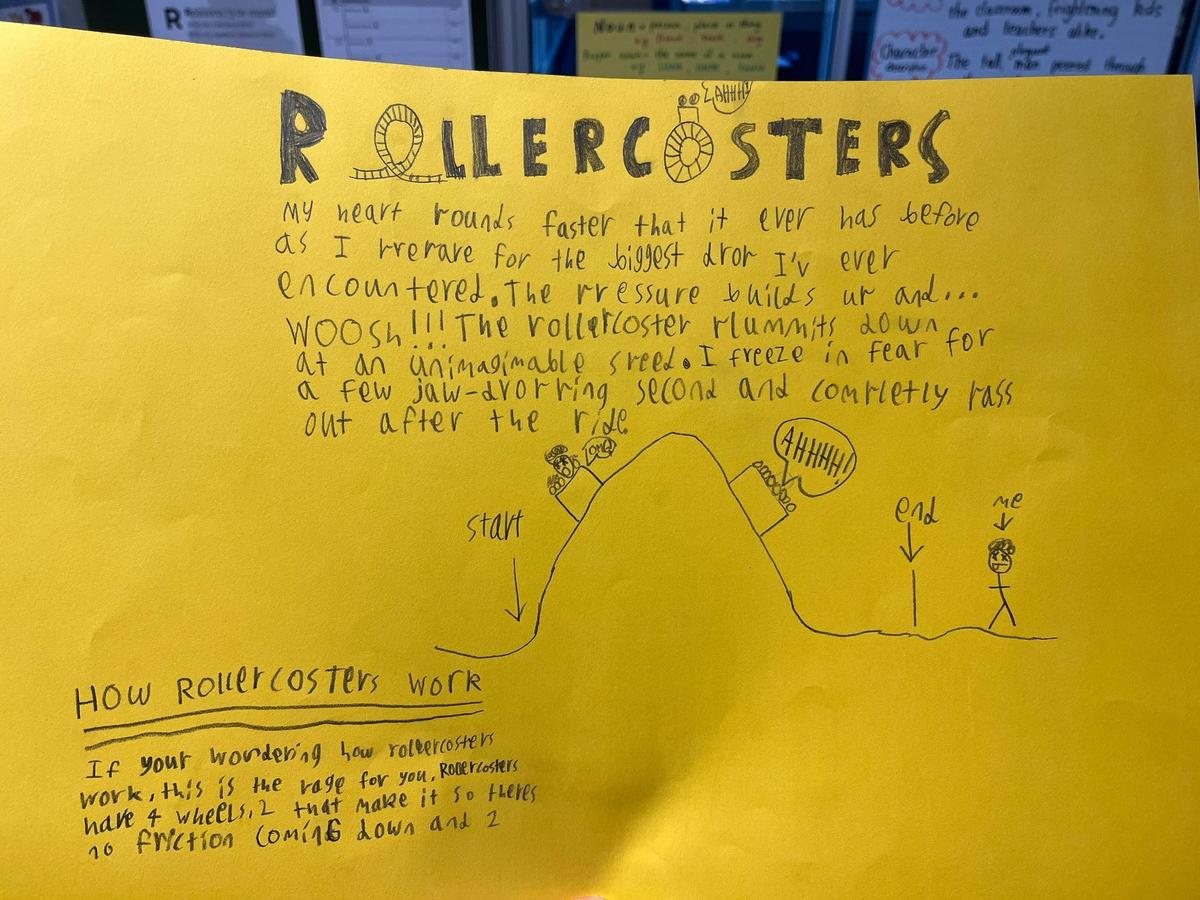 R
Noun = person, place or thing
the classroom, frightening kids
and teachers alike.
Character
elegant
The tall, man through
AHHH!
ROLLERCOSTERS
My heart pounds faster that it ever has before
as I prepare for the biggest drop I'v ever
encountered. The pressure builds up and...
WOOSh!!! The rollercoster plummits down
at an unimaginable speed. I freeze in fear for
a few jaw-dropping second and completly pass
out after the ride.
ZOMG!
AHHHH!
start
end
me
HOW ROllerCOSTers WOrK
If your wondering how rollercosters
work, this is the page for you, Rollercosters
have 4 wheels, 2 that make it so theres
no friction cominG down and 2